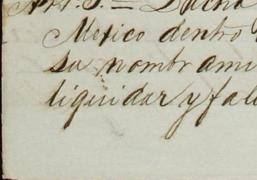 Art. 3.= Dicha
Mexico dentro
su nombrami
liquidar y fal